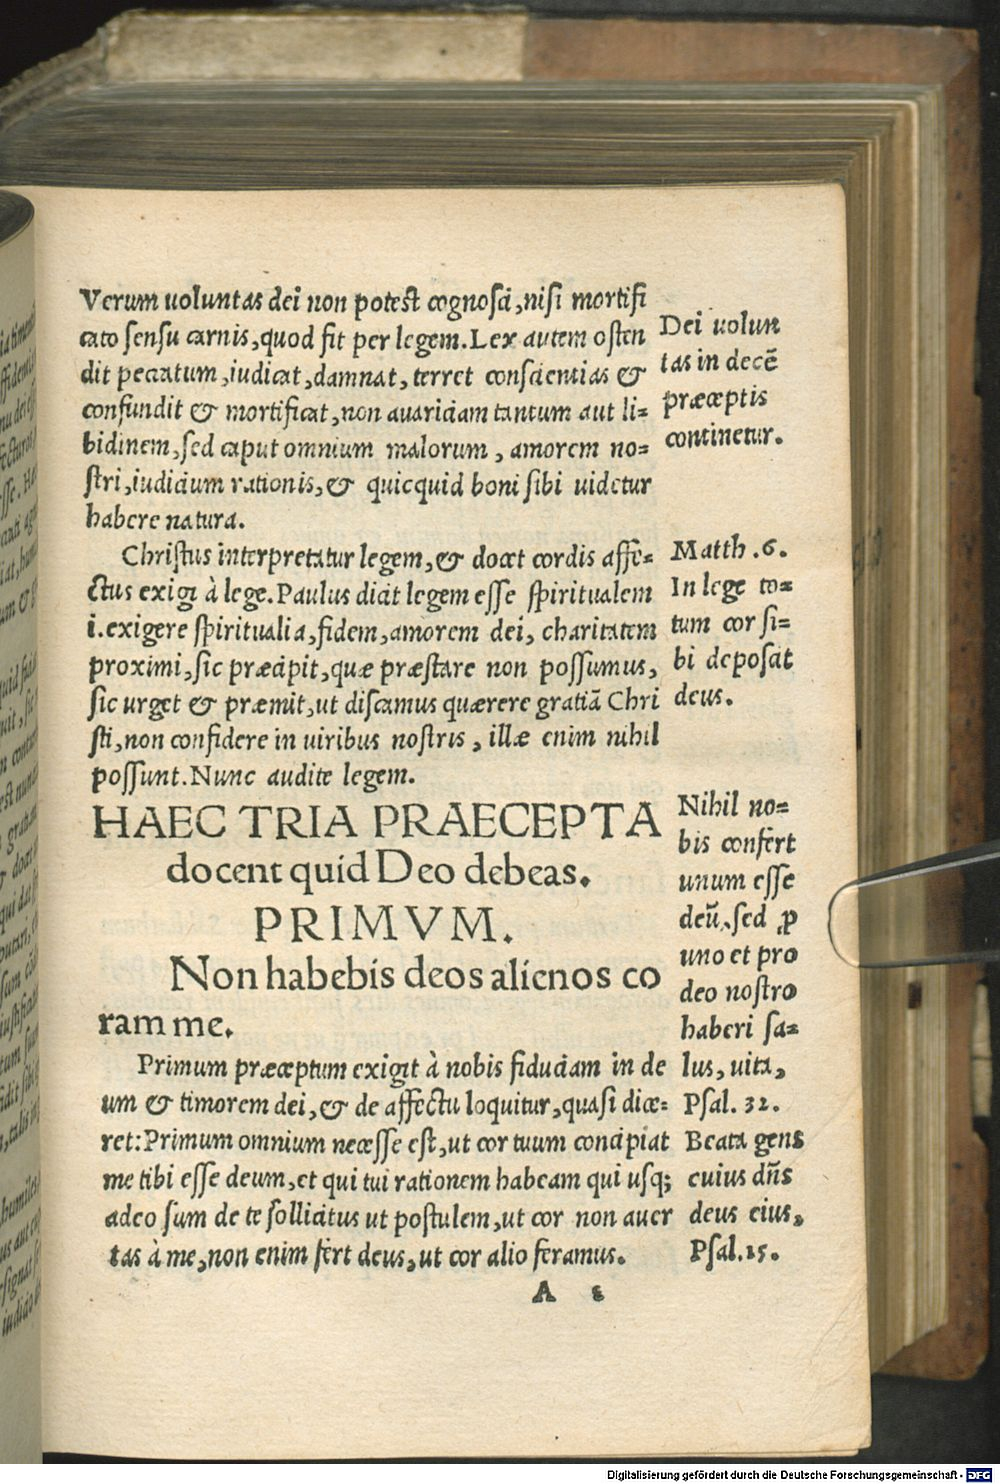 Verum uoluntas dei non potest cognosci, nisi mortifi
cato sensu carnis, quod fit per legem. Lex autem osten
dit peccatum, iudicat, damnat, terret conscientias &
confundit & mortificat, non auariciam tantum aut li=
bidinem, sed caput omnium malorum, amorem no=
stri, iudicium rationis, & quicquid boni sibi uidetur
habere natura.
Dei uolun
tas in decē
præceptis
continetur.
Christus interpretatur legem, & docet cordis affe=
ctus exigi à lege. Paulus dicit legem esse spiritualem
i. exigere spiritualia, fidem, amorem dei, charitatem
proximi, sic præcipit, quæ præstare non possumus,
sic urget & præmit, ut discamus quærere gratiā Chri
sti, non confidere in uiribus nostris, illæ enim nihil
possunt. Nunc audite legem.
Matth. 6.
In lege to=
tum cor si=
bi deposcit
deus.
HAEC TRIA PRAECEPTA
docent quid Deo debeas.
PRIMVM.
Non habebis deos alienos co
ram me.
Primum præceptum exigit à nobis fiduciam in de
um & timorem dei, & de affectu loquitur, quasi dice=
ret: Primum omnium necesse est, ut cor tuum concipiat
me tibi esse deum, et qui tui rationem habeam qui usq;
adeo sum de te sollicitus ut postulem, ut cor non auer
tas à me, non enim fert deus, ut cor alio feramus.
Nihil no=
bis confert
unum esse
deū, sed p
uno et pro
deo nostro
haberi sa=
lus, uita,
Psal. 32.
Beata gens
cuius dn̄s
deus eius,
Psal. 15.
A
Digitalisierung gefördert durch die Deutsche Forschungsgemeinschaft - DFG